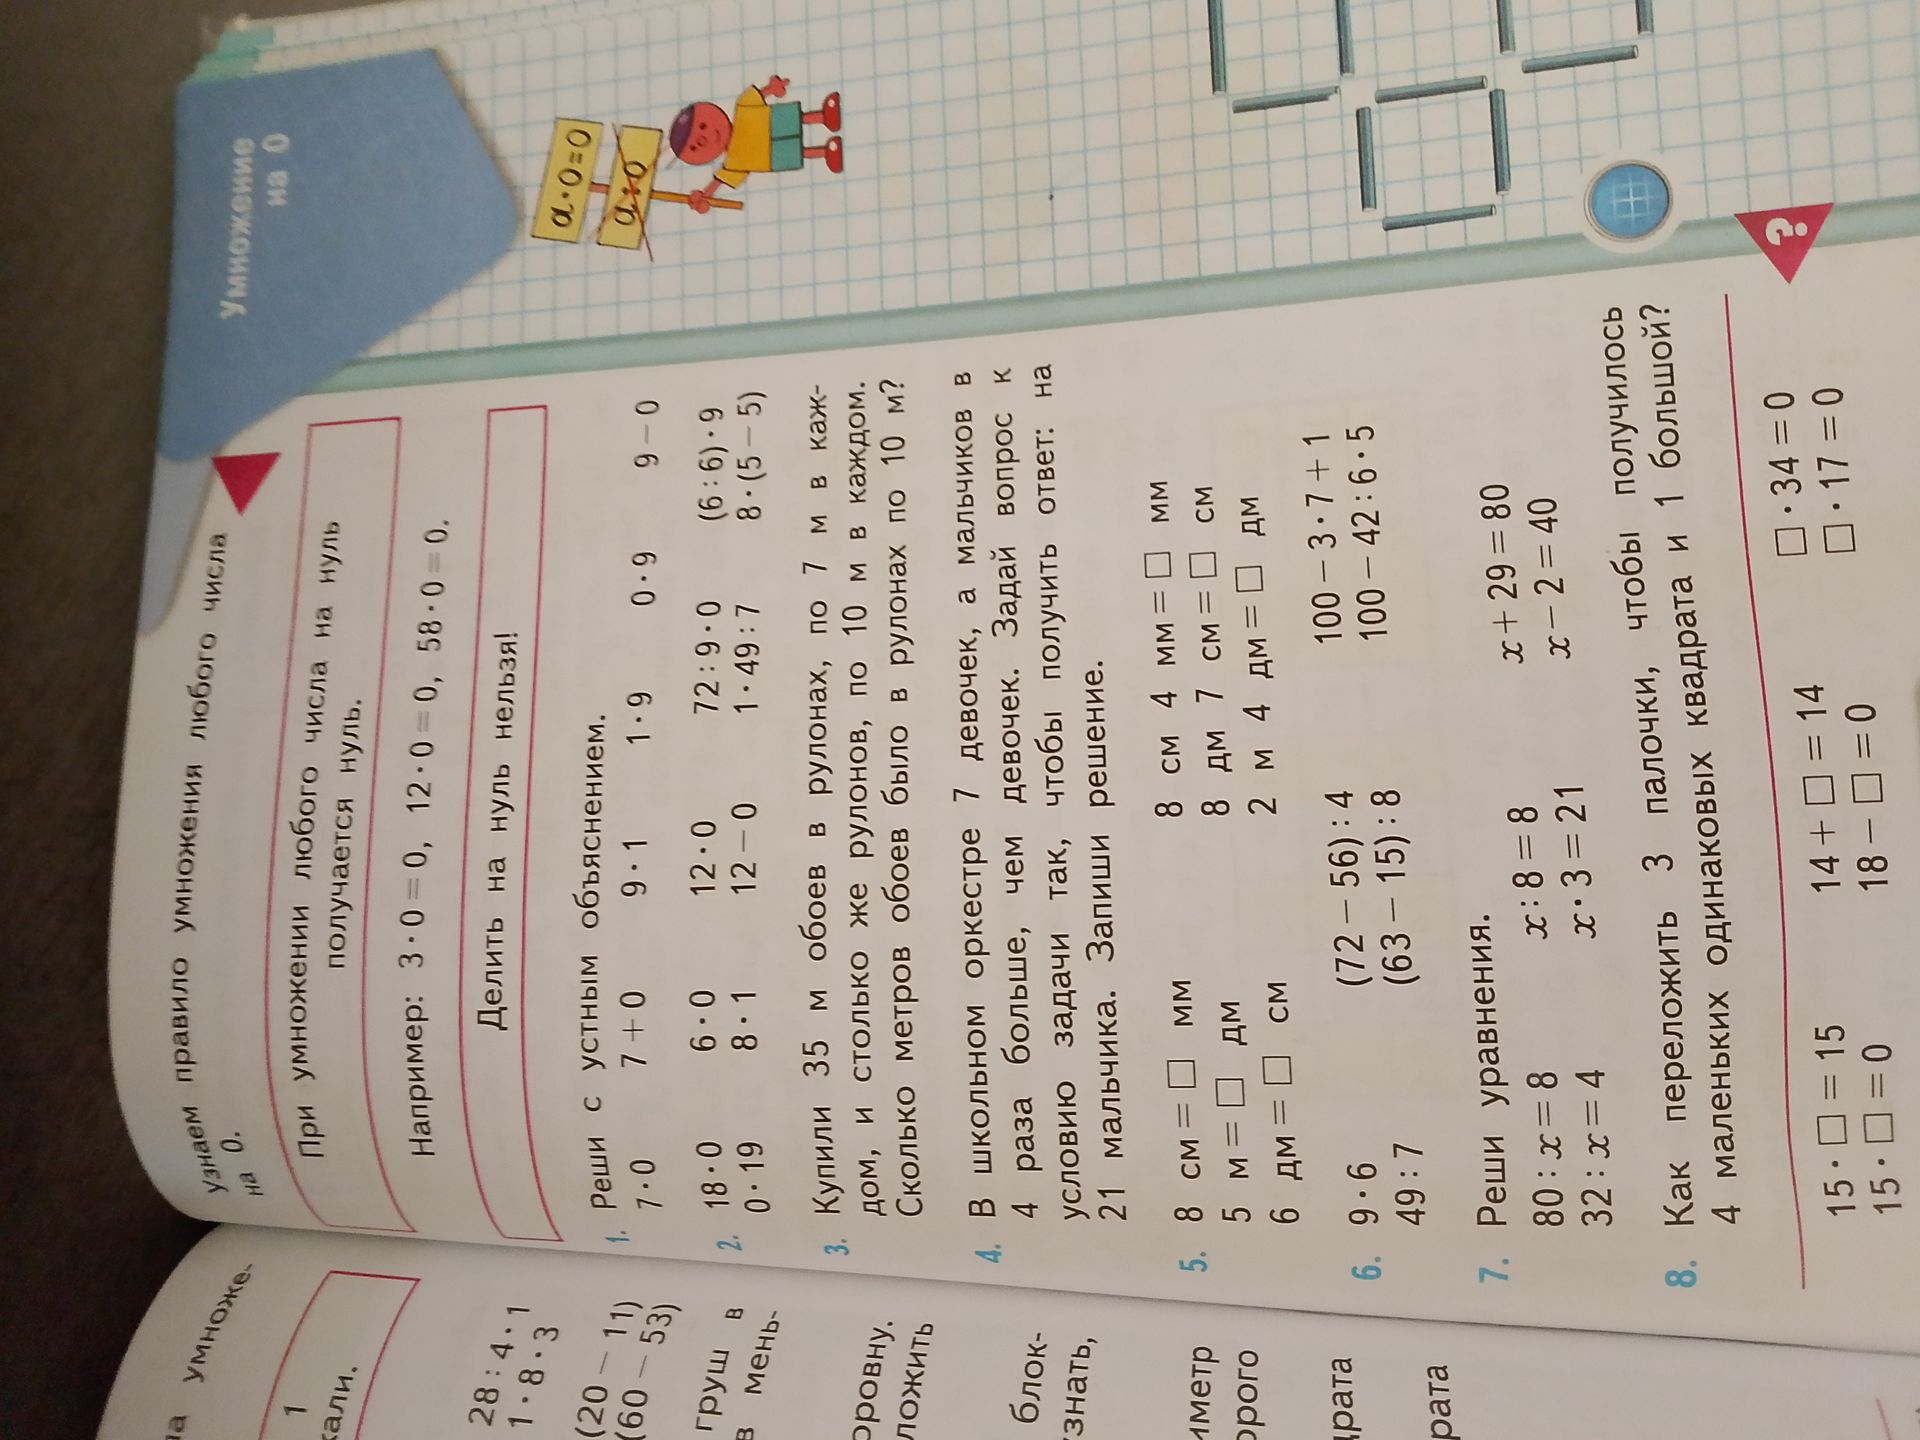 Умножение
на 0
Узнаем правило умножения любого числа
на 0.
При умножении любого числа на нуль
получается нуль.
Например: 3 · 0 = 0, 12 · 0 = 0, 58 · 0 = 0.
Делить на нуль нельзя!
a · 0 = 0
a : 0
1. Реши с устным объяснением.
7 · 0 7 + 0 9 · 1 1 · 9 0 · 9 9 − 0
2. 18 · 0 6 · 0 12 · 0 72 : 9 · 0 (6 : 6) · 9
0 · 19 8 · 1 12 − 0 1 · 49 : 7 8 · (5 − 5)
3. Купили 35 м обоев в рулонах, по 7 м в каж-
дом, и столько же рулонов, по 10 м в каждом.
Сколько метров обоев было в рулонах по 10 м?
4. В школьном оркестре 7 девочек, а мальчиков в
4 раза больше, чем девочек. Задай вопрос к
условию задачи так, чтобы получить ответ: на
21 мальчика. Запиши решение.
5. 8 см = □ мм 8 см 4 мм = □ мм
5 м = □ дм 8 дм 7 см = □ см
6 дм = □ см 2 м 4 дм = □ дм
6. 9 · 6 (72 − 56) : 4 100 − 3 · 7 + 1
49 : 7 (63 − 15) : 8 100 − 42 : 6 · 5
7. Реши уравнения.
80 : x = 8 x : 8 = 8 x + 29 = 80
32 : x = 4 x · 3 = 21 x − 2 = 40
8. Как переложить 3 палочки, чтобы получилось
4 маленьких одинаковых квадрата и 1 большой?
?
15 · □ = 15 14 + □ = 14 □ · 34 = 0
15 · □ = 0 18 − □ = 0 □ · 17 = 0
умноже-
1
28 : 4 · 1
1 · 8 · 3
(20 − 11)
(60 − 53)
груш в
в мень-
блок-